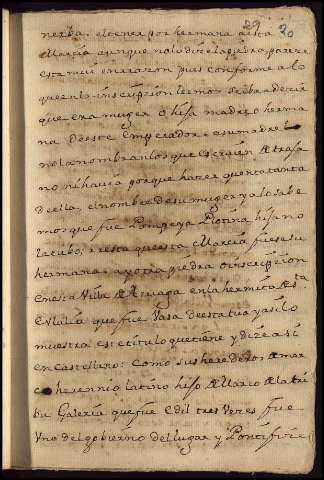 29 30
nerla. el tener por hermana a esta
Marcia aunque no lo dice la piedra parece
esta mui en raçon pues conforme a lo
que en la inscripcion leemos se ha a decir
que era muger o hija madre o herma
na deeste Emperador. a su madre
no la nombran los que escriven de traja
no ni havia porque hazer quenta tanta
de ella, el nombre de su muger ya lo sabe
mos que fue Pompeya Plotina hija no
la tubo; resta que esta Marcia fuese su
hermana. ay otra piedra o inscripcion
en esta Villa de Azuaga en la hermita de Sta
Eulalia que fue Vasa de estatua y asi lo
muestra este titulo que tiene y dize asi
en Castellano: Como sus herederos a Mar
co herennio latino hijo de Mario de la tri
bu Galeria que fue Edil tres Veces fue
Uno del gobierno del lugar y Pontifice